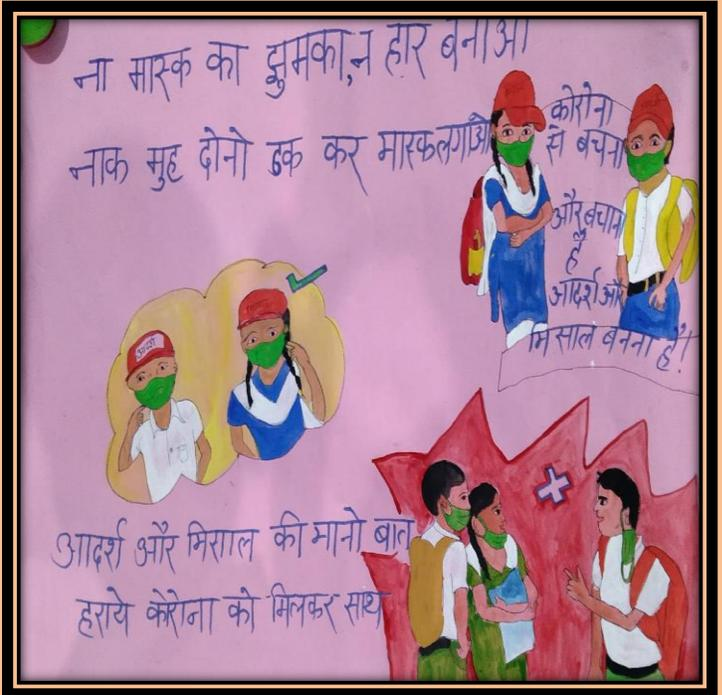 ना मास्क का झुमका,न हार बनाओ
नाक मुह दोनो ढक कर मास्कलगाओ
कोरोना
से बचना
और बचाना
है
आदर्श और
मिसाल बनना है!
आदर्श
आदर्श और मिसाल की मानो बात
हराये कोरोना को मिलकर साथ